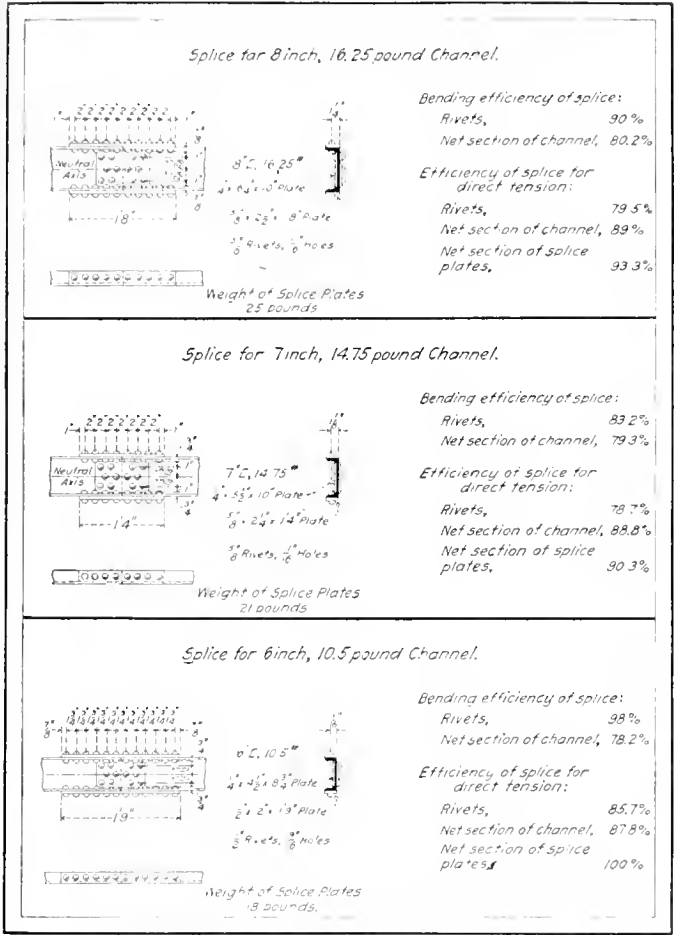 Splice for 8 inch, 16.25 pound Channel.
1" 2" 2" 2" 2" 2" 2" 2" 2"
Neutral
Axis
1'8"
8"[, 16.25#
Weight of Splice Plates
25 pounds
Bending efficiency of splice:
Rivets, 90%
Net section of channel, 80.2%
Efficiency of splice for
direct tension:
Rivets, 79.5%
Net section of channel, 89%
Net section of splice
plates, 93.3%
Splice for 7 inch, 14.75 pound Channel.
1" 2" 2" 2" 2" 2" 2" 2" 1"
Neutral
Axis
1'4"
7"[, 14.75#
5/8" × 2 1/4" × 1'4" Plate
5/8" Rivets, Holes
Weight of Splice Plates
21 pounds
Bending efficiency of splice:
Rivets, 83.2%
Net section of channel, 79.3%
Efficiency of splice for
direct tension:
Rivets, 78.7%
Net section of channel, 88.8%
Net section of splice
plates, 90.3%
Splice for 6 inch, 10.5 pound Channel.
1'9"
6"[, 10.5#
1/4" × 4 1/2" × 8 3/4" Plate
1/2" × 2" × 1'9" Plate
1/2" Rivets, 9/16" Holes
Weight of Splice Plates
18 pounds.
Bending efficiency of splice:
Rivets, 98%
Net section of channel, 78.2%
Efficiency of splice for
direct tension:
Rivets, 85.7%
Net section of channel, 87.8%
Net section of splice
plates, 100%